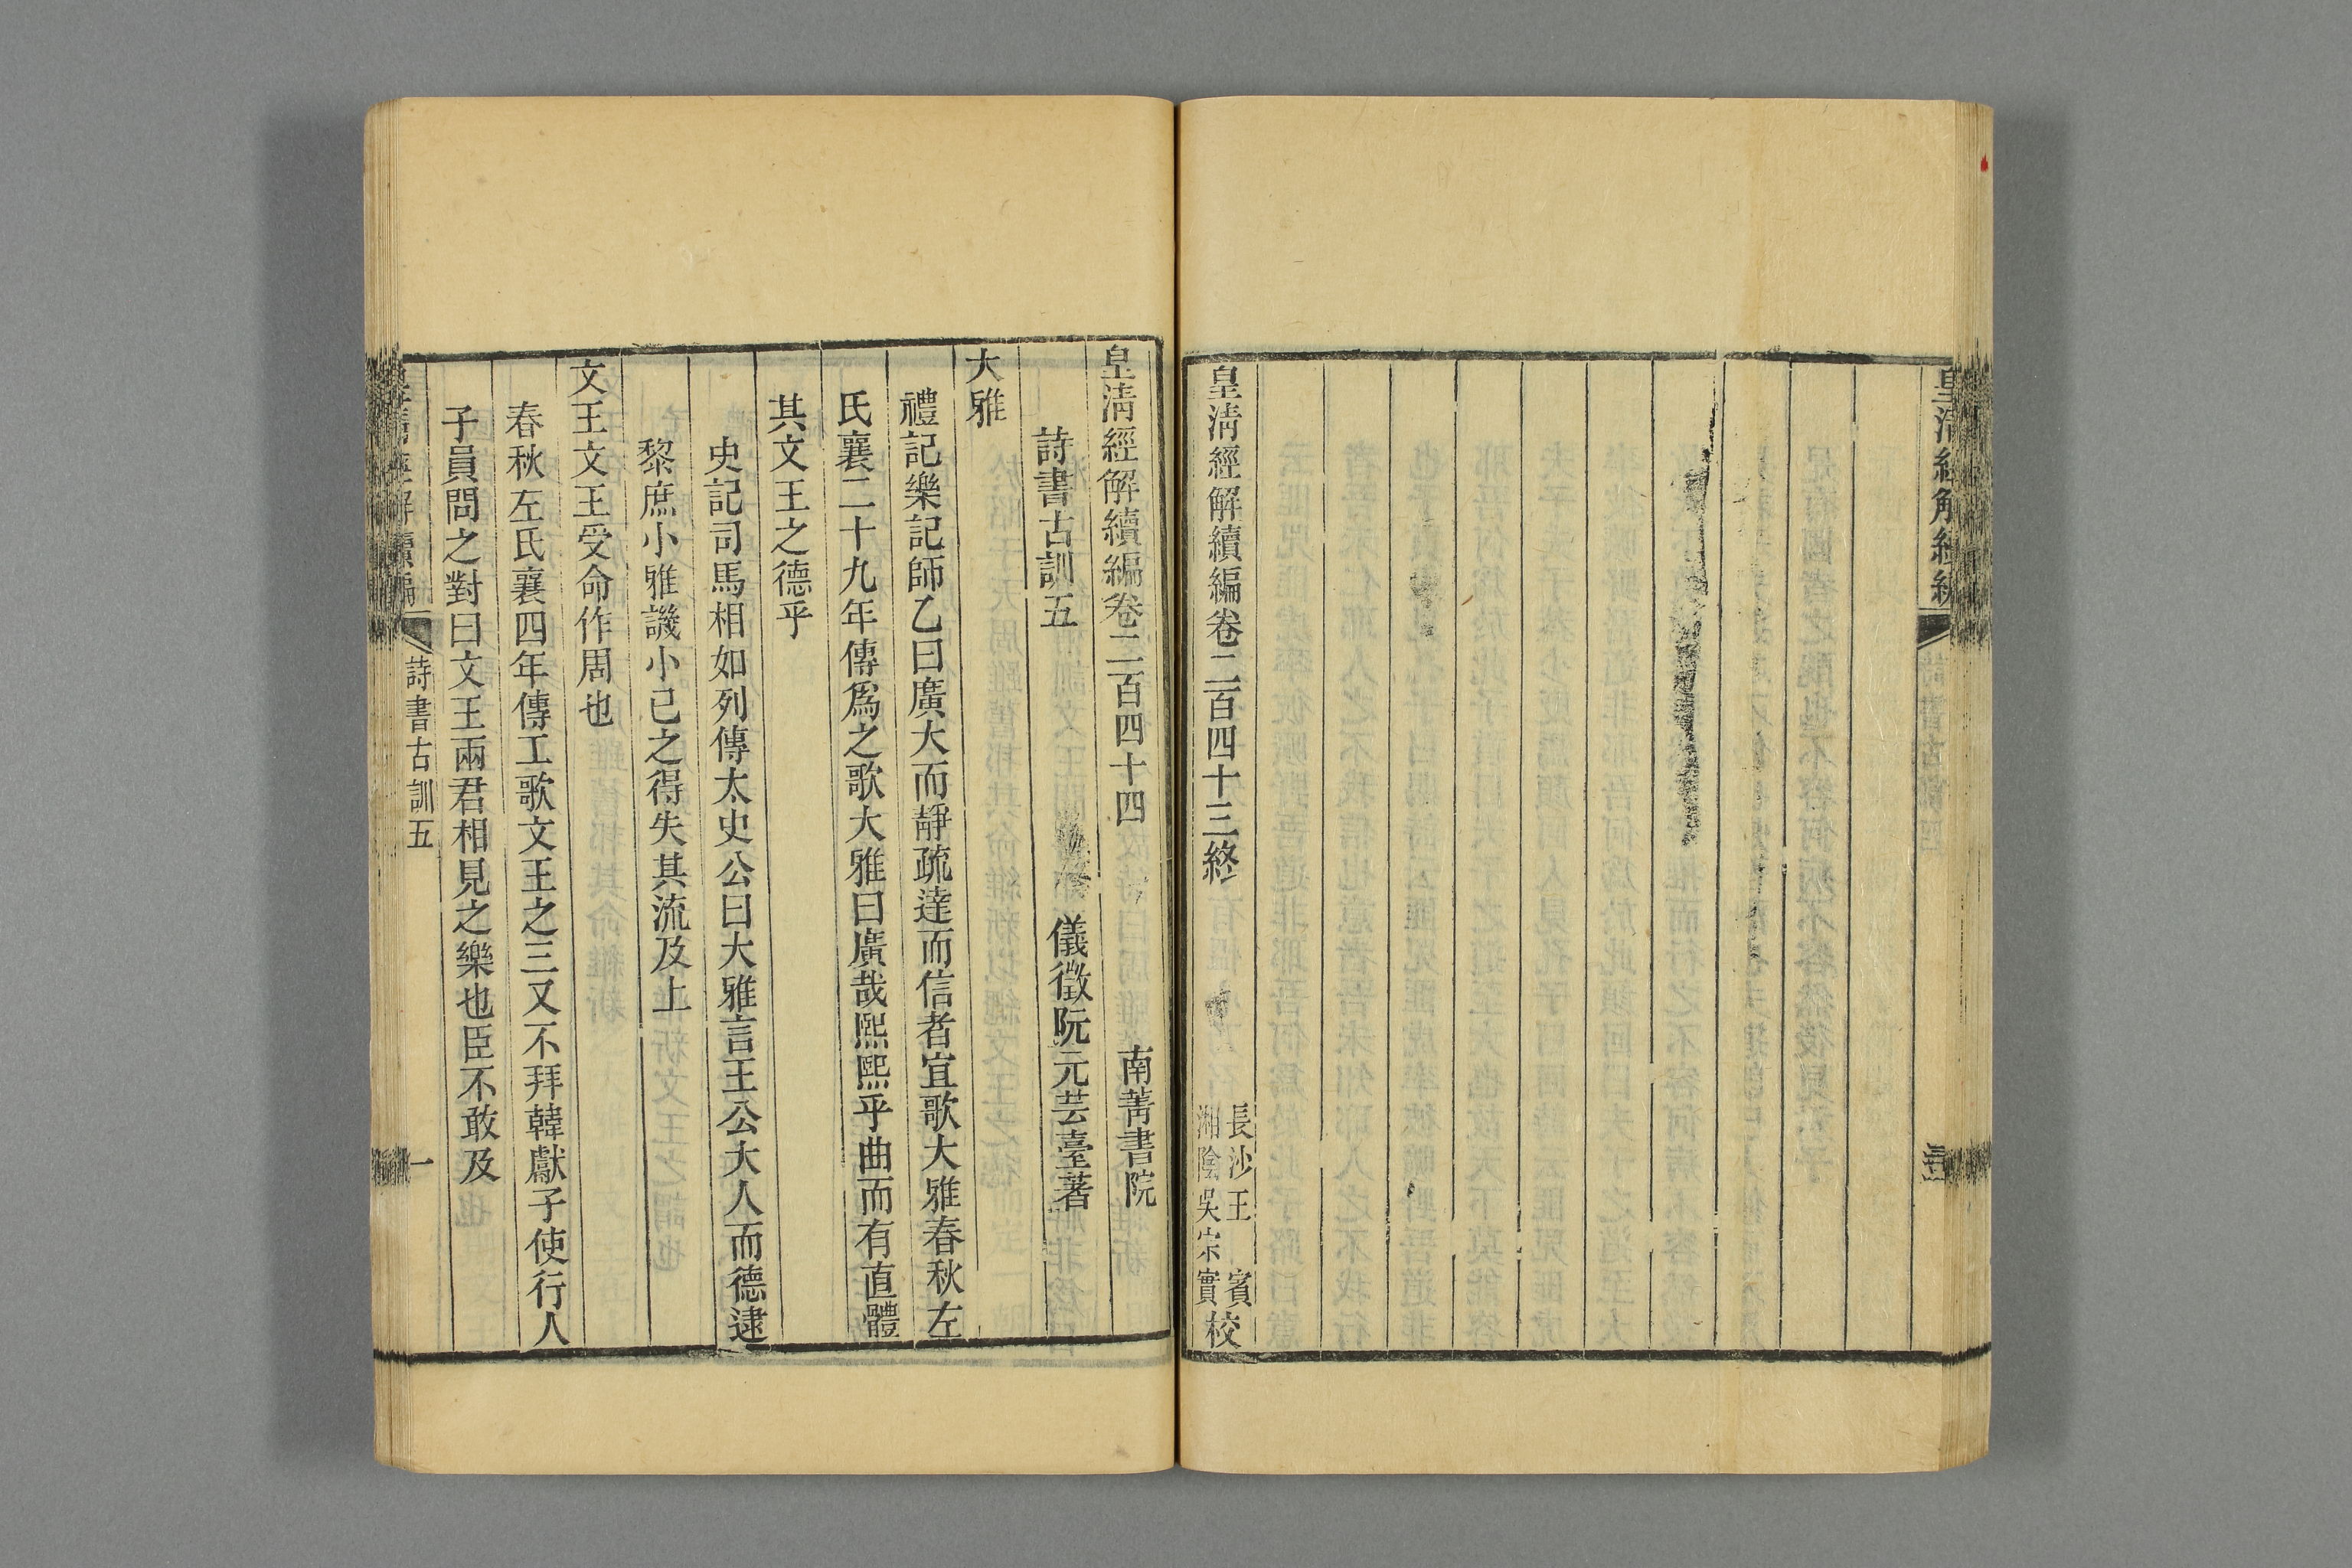 皇清經解續編
皇清經解續編卷二百四十三終
長沙王賓
湘陰吳宗實校
皇清經解續編卷二百四十四　南菁書院
詩書古訓五　儀徵阮元芸臺著
大雅
禮記樂記師乙曰廣大而靜疏達而信者宜歌大雅春秋左
氏襄二十九年傳爲之歌大雅曰廣哉熙熙乎曲而有直體
其文王之德乎
史記司馬相如列傳太史公曰大雅言王公大人而德逮
黎庶小雅譏小己之得失其流及上
文王文王受命作周也
春秋左氏襄四年傳工歌文王之三又不拜韓獻子使行人
子員問之對曰文王兩君相見之樂也臣不敢及
皇清經解續編　詩書古訓五　一